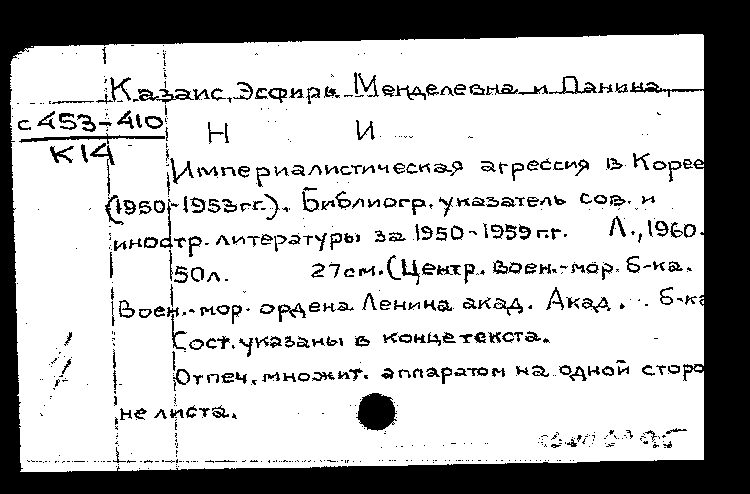 Казаис, Эсфирь Менделевна и Панина,
с 453-410
К14
Н И
Империалистическая агрессия в Корее
(1950-1953гг.). Библиогр. указатель сов. и
иностр. литературы за 1950-1959г.г. Л., 1960.
50л. 27см. (Центр. воен.-мор. б-ка.
Воен.-мор. ордена Ленина акад. Акад. б-ка
Сост. указаны в конце текста.
Отпеч. множит. аппаратом на одной сторо
не листа.